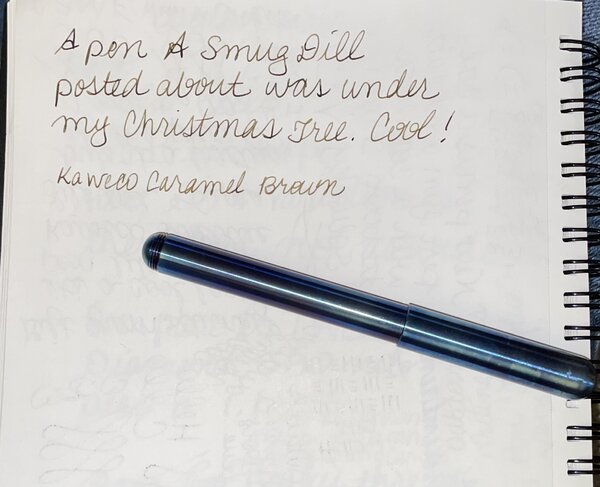 A pen A Smug Dill
posted about was under
my Christmas Tree. Cool!
Kaweco Caramel Brown